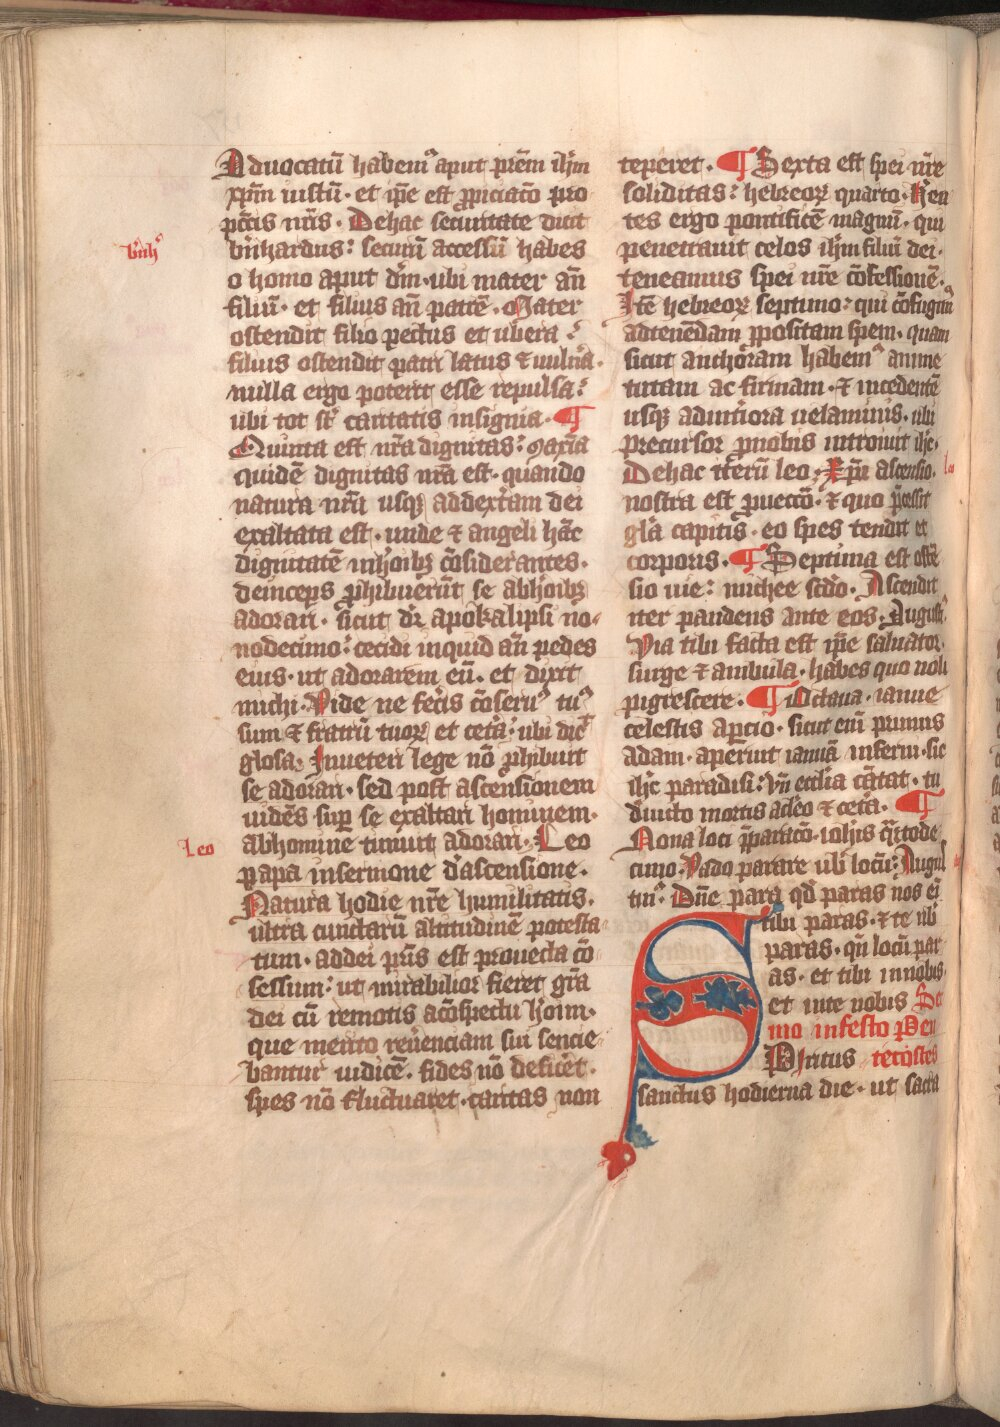 Aduocatū habemꝰ aput prēm ih̄m
xp̄m iustū · et ip̄e est ꝓpiciatō pro
pc̄tis nr̄is · De hac securitate dicit
bn̄hardus : securū accessū habes
bn̄hꝰ
o homo aput dm̄ · ubi mater an̄
filiū · et filius an̄ patrē · Mater
ostendit filio pectus et ubera :
filius ostendit patri latus ⁊ uulnr̄a ·
nulla ergo poterit esse repulsa :
ubi tot st̄ caritatis insignia · ¶
Quinta est nr̄a dignitas : maxīa
quidē dignitas nr̄a est · quando
natura nr̄i usqꝫ ad dext̄am dei
exaltata est · unde ⁊ angeli hāc
dignitatē in hōibꝫ cōsiderantes ·
deinceps ꝓhibuerūt se ab hōibꝫ
adorari · sicut dr̄ apokalipsi no-
nodecimo : cecidi inquid an̄ pedes
eius · ut adorarem eū · et dixit
michi · Vide ne fec̄is cōseruꝰ tuꝰ
sum ⁊ fratrū tuoꝝ et cetā : ubi dic̄
glosa : In ueteri lege nō ꝓhibuit
se adorari · sed post ascensionem
uidēs suꝑ se exaltari hominem ·
ab homine timuit adorari · Leo
Leo
papa in sermone d̄ ascensione ·
Natura hodie nr̄e humilitatis ·
ultra cunctarū altitudinē potesta-
tum · ad dei pr̄is est prouecta cō
sessum : ut mirabilior fieret gr̄a
dei cū remotis a cōspectu hoīm ·
que merito reuerenciam sui sencie-
bantur iudicē · fides nō deficēt ·
spes nō fluctuaret · caritas non
teperet · ¶ Sexta est spei nr̄e
soliditas : hebreoꝝ quarto · Hēn
tes ergo pontificē magnū · qui
penetrauit celos ih̄m filiū dei ·
teneamus spei nr̄e cōfessionē ·
Itē hebreoꝝ septimo : qui cōfugim̄
ad tenēdam ꝓpositam spem · quam
sicut anchoram habemꝰ anime
tutam ac firmam · ⁊ incedentē
usqꝫ ad int̄iora uelaminis · ubi
precursor ꝓ nobis introiuit ih̄c ·
De hac it̄erū leo · Xp̄i ascensio ·
nostra est ꝓuectō · ⁊ quo p̄cessit
gl̄a capitis · eo spes tendit et
corporis · ¶ Septima est ostē
sio uie : michee scd̄o · Ascendit
iter pandens ante eos · Augustꝰ ·
Via tibi facta est ip̄e saluator ·
surge ⁊ ambula · habes quo noli
pigrescere · ¶ Octaua · ianue
celestis aꝑcio · sicut eni̅ primus
adam · aperuit ianuā inferni · sic
ih̄c paradisi : vn̄ eccl̄ia cātat · tu
deuicto mortis acl̄eo ⁊ cet̄a · ¶
Nona loci p̄paratō · ioh̄is q̄rtode
cimo · Vado parare uob̄ locū : Augus
tinꝰ · Dn̄e para qd̄ paras nos ei̅
tibi paras · ⁊ te nob̄
paras · qn̄ locū par
as · et tibi in nobis
et in te nobis Ser
mo in festo Pen
SPiritus tecostes
sanctus hodierna die · ut sacra